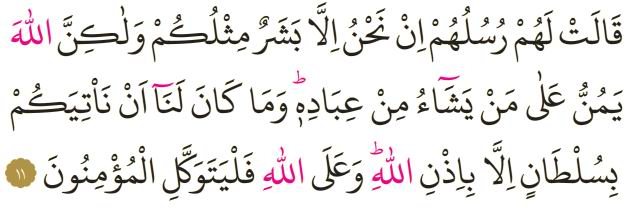 قَالَتْ لَهُمْ رُسُلُهُمْ اِنْ نَّحْنُ اِلَّا بَشَرٌ مِّثْلُكُمْ وَلٰكِنَّ اللّٰهَ
يَمُنُّ عَلٰى مَنْ يَّشَآءُ مِنْ عِبَادِهٖ ؕ وَمَا كَانَ لَنَآ اَنْ نَّاْتِيَكُمْ
بِسُلْطَانٍ اِلَّا بِاِذْنِ اللّٰهِ ؕ وَعَلَى اللّٰهِ فَلْيَتَوَكَّلِ الْمُؤْمِنُوْنَ ١١